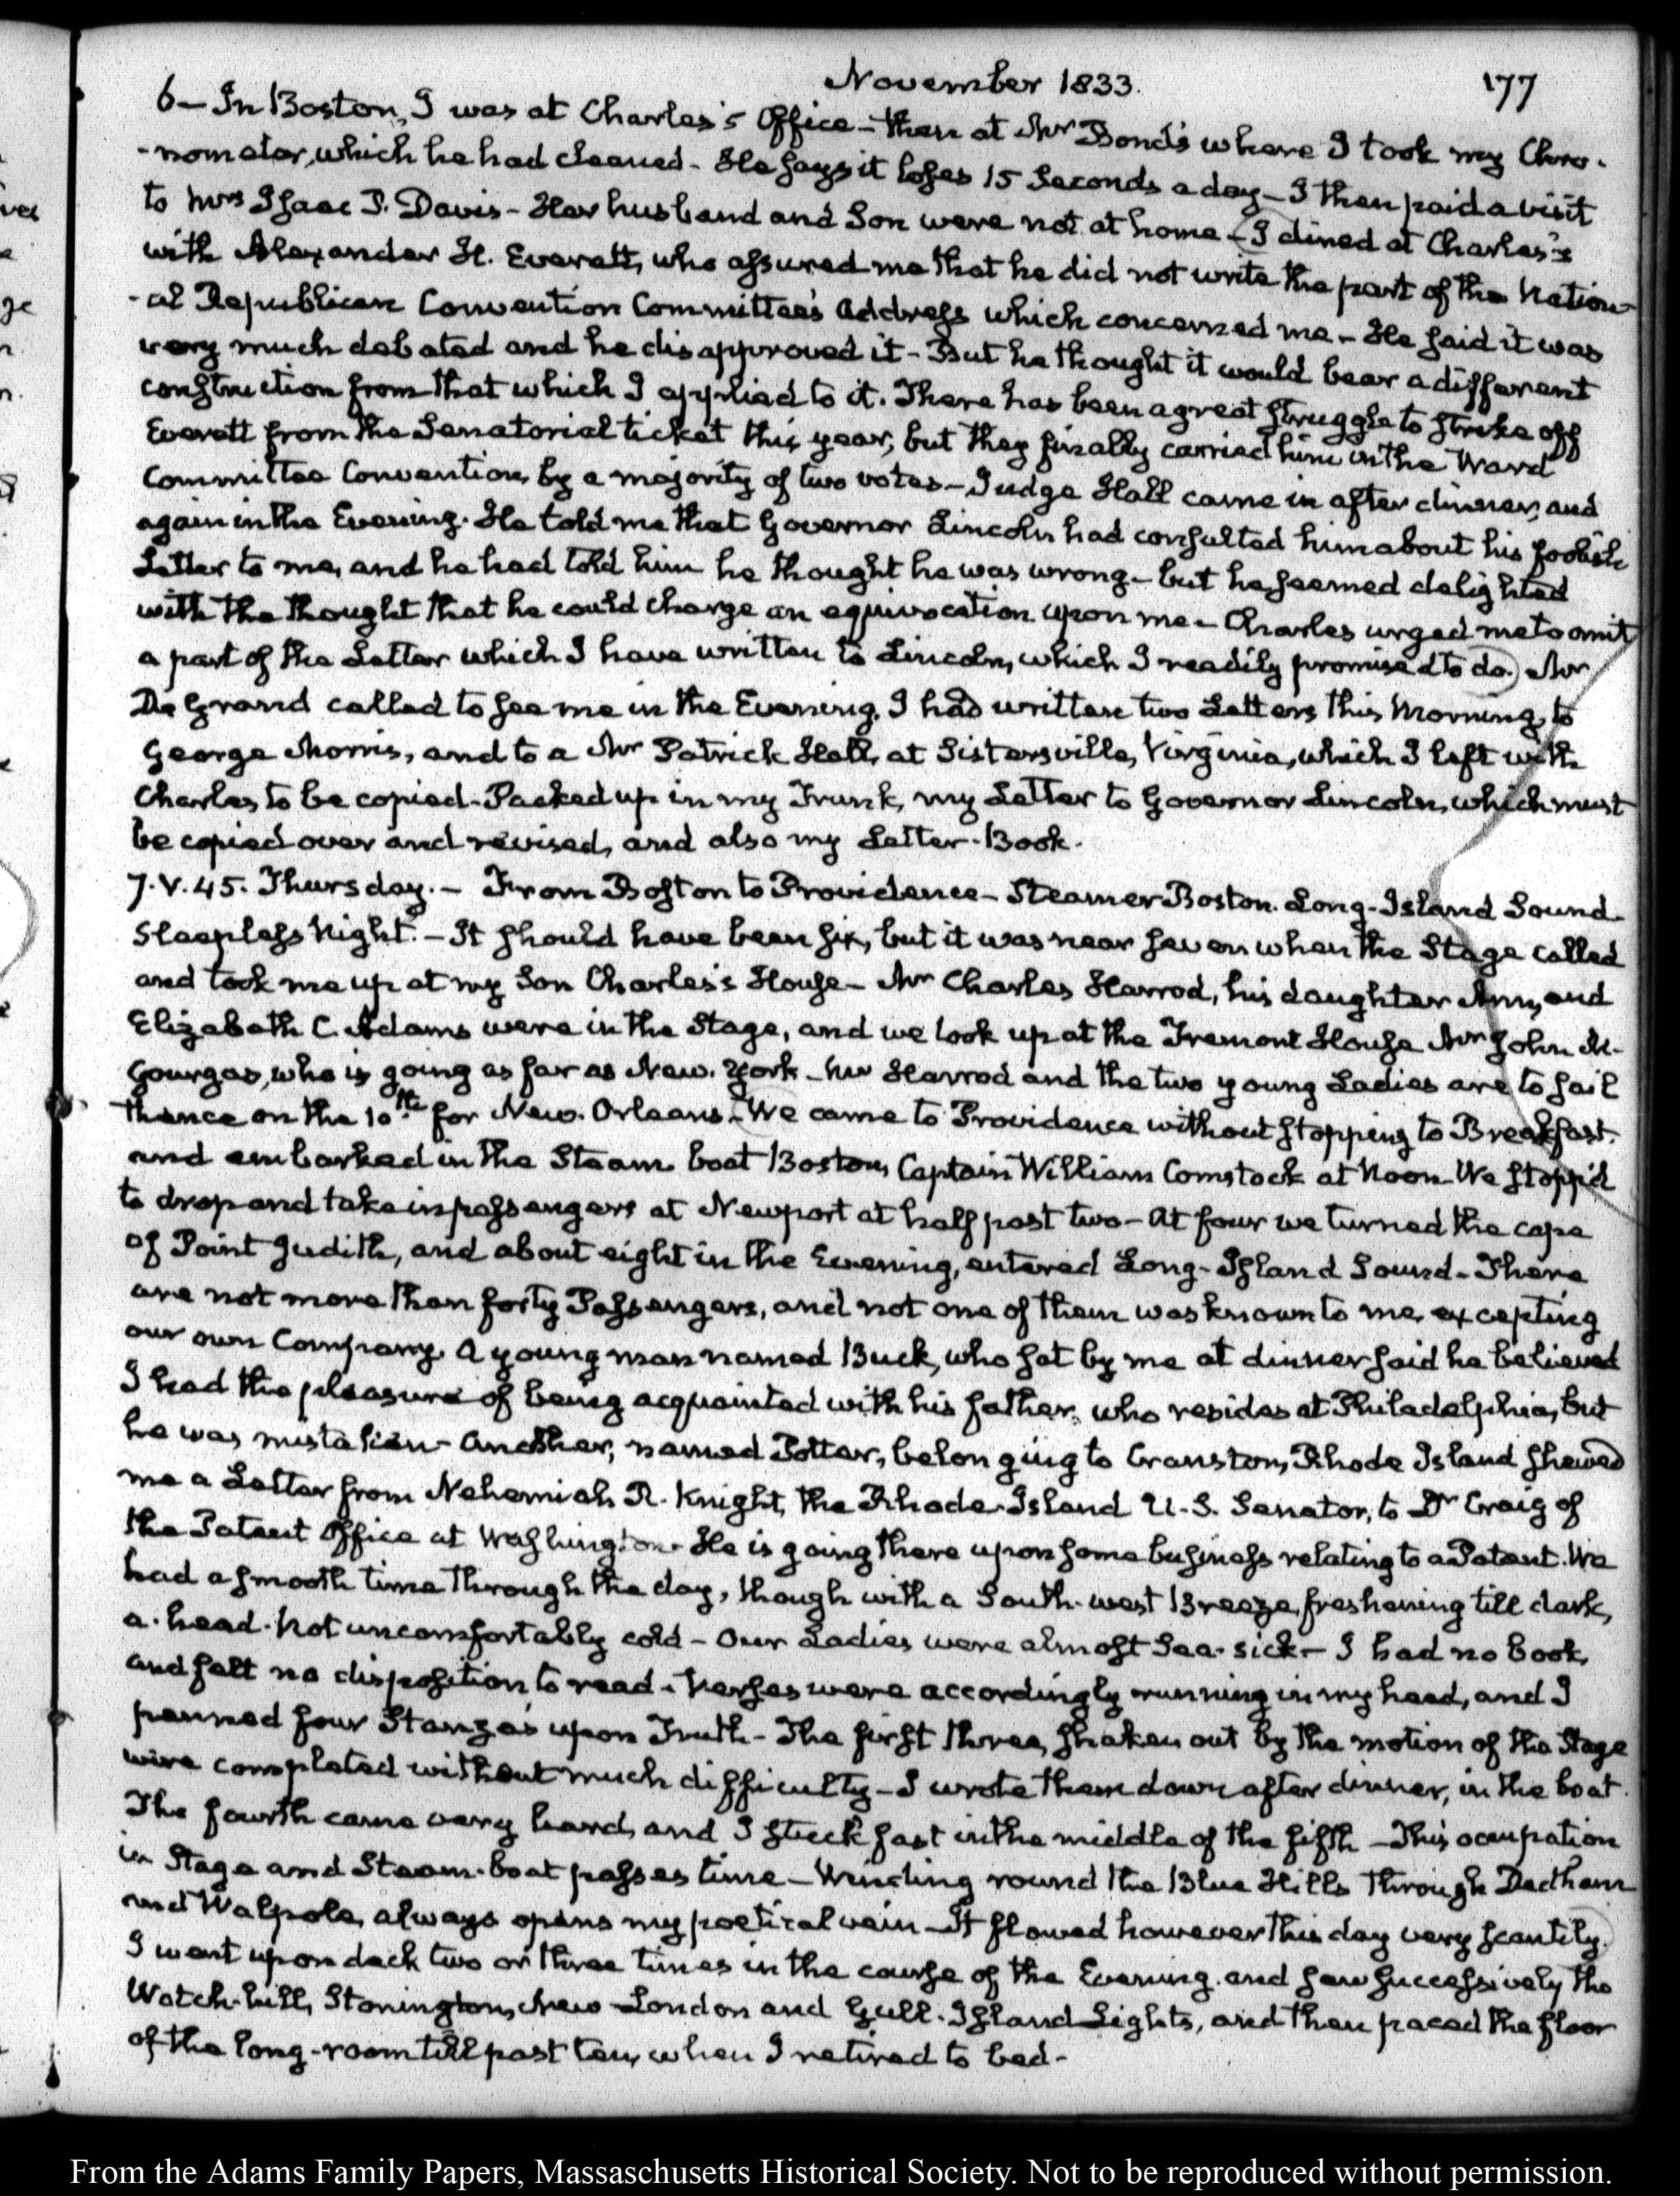 November 1833.
177
6 — In Boston, I was at Charles's Office — then at Mr Bond's where I took my Chro-
-nometer, which he had cleaned — He says it loses 15 Seconds a day — I then paid a visit
to Mrs Isaac P. Davis — Her husband and Son were not at home — I dined at Charles's
with Alexander H. Everett, who assured me that he did not write the part of the Nation-
-al Republican Convention Committee's Address which concerned me — He said it was
very much debated and he disapproved it — But he thought it would bear a different
construction from that which I applied to it. There has been a great struggle to strike off
Everett from the Senatorial ticket this year, but they finally carried him in the Ward
Committee Convention, by a majority of two votes — Judge Hall came in after dinner, and
again in the Evening. He told me that Governor Lincoln had consulted him about his foolish
Letter to me, and he had told him he thought he was wrong — but he seemed delighted
with the thought that he could charge an equivocation upon me — Charles urged me to omit
a part of the Letter which I have written to Lincoln, which I readily promised to do. Mr
De Grand called to see me in the Evening. I had written two Letters this Morning, to
George Morris, and to a Mr Patrick Hall, at Sistersville, Virginia, which I left with
Charles, to be copied — Packed up in my Trunk, my Letter to Governor Lincoln, which must
be copied over and revised, and also my Letter-Book.
7. V. 45. Thursday. — From Boston to Providence — Steamer Boston. Long-Island Sound.
Sleepless Night. — It should have been six, but it was near seven when the Stage called
and took me up at my Son Charles's House — Mr Charles Harrod, his daughter Ann, and
Elizabeth C. Adams were in the Stage, and we took up at the Tremont House Mr John M.
Gourgas, who is going as far as New-York — Mr Harrod and the two young Ladies are to sail
thence on the 10th for New-Orleans. — We came to Providence without stopping to Breakfast,
and embarked in the Steam-boat Boston, Captain William Comstock at Noon — We stopp'd
to drop and take in passengers at Newport at half past two — At four we turned the cape
of Point Judith, and about eight in the Evening, entered Long-Island Sound — There
are not more than forty Passengers, and not one of them was known to me, excepting
our own Company. A young man named Buck, who sat by me at dinner said he believed
I had the pleasure of being acquainted with his father, who resides at Philadelphia, but
he was mistaken — Another, named Potter, belonging to Cranston, Rhode Island shewed
me a Letter from Nehemiah R. Knight, the Rhode-Island U.S. Senator, to Dr Craig of
the Patent Office at Washington — He is going there upon some business relating to a Patent. We
had a smooth time through the day, though with a South-west Breeze, freshening till dark,
a-head — Not uncomfortably cold — Our Ladies were almost Sea-sick — I had no book,
and felt no disposition to read — Verses were accordingly running in my head, and I
penned four Stanzas upon Truth — The first three, shaken out by the motion of the Stage
were completed without much difficulty — I wrote them down after dinner, in the boat.
The fourth came very hard, and I stuck fast in the middle of the fifth — This occupation
in Stage and Steam-boat passes time — Winding round the Blue Hills through Dedham
and Walpole, always opens my poetical vein — It flowed however this day very scantily.
I went upon deck two or three times in the course of the Evening, and saw successively the
Watch-hill, Stonington, New-London and Gull-Island Lights, and then paced the floor
of the long-room till past ten, when I retired to bed —
From the Adams Family Papers, Massachusetts Historical Society. Not to be reproduced without permission.